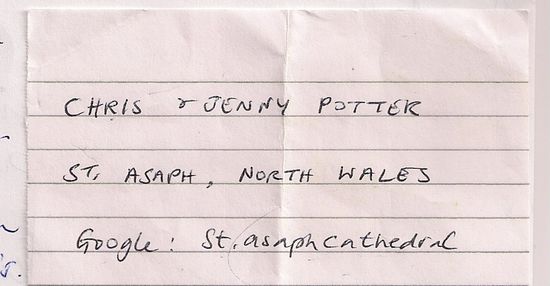 CHRIS & JENNY POTTER
ST. ASAPH, NORTH WALES
Google: St.asaphcathedral